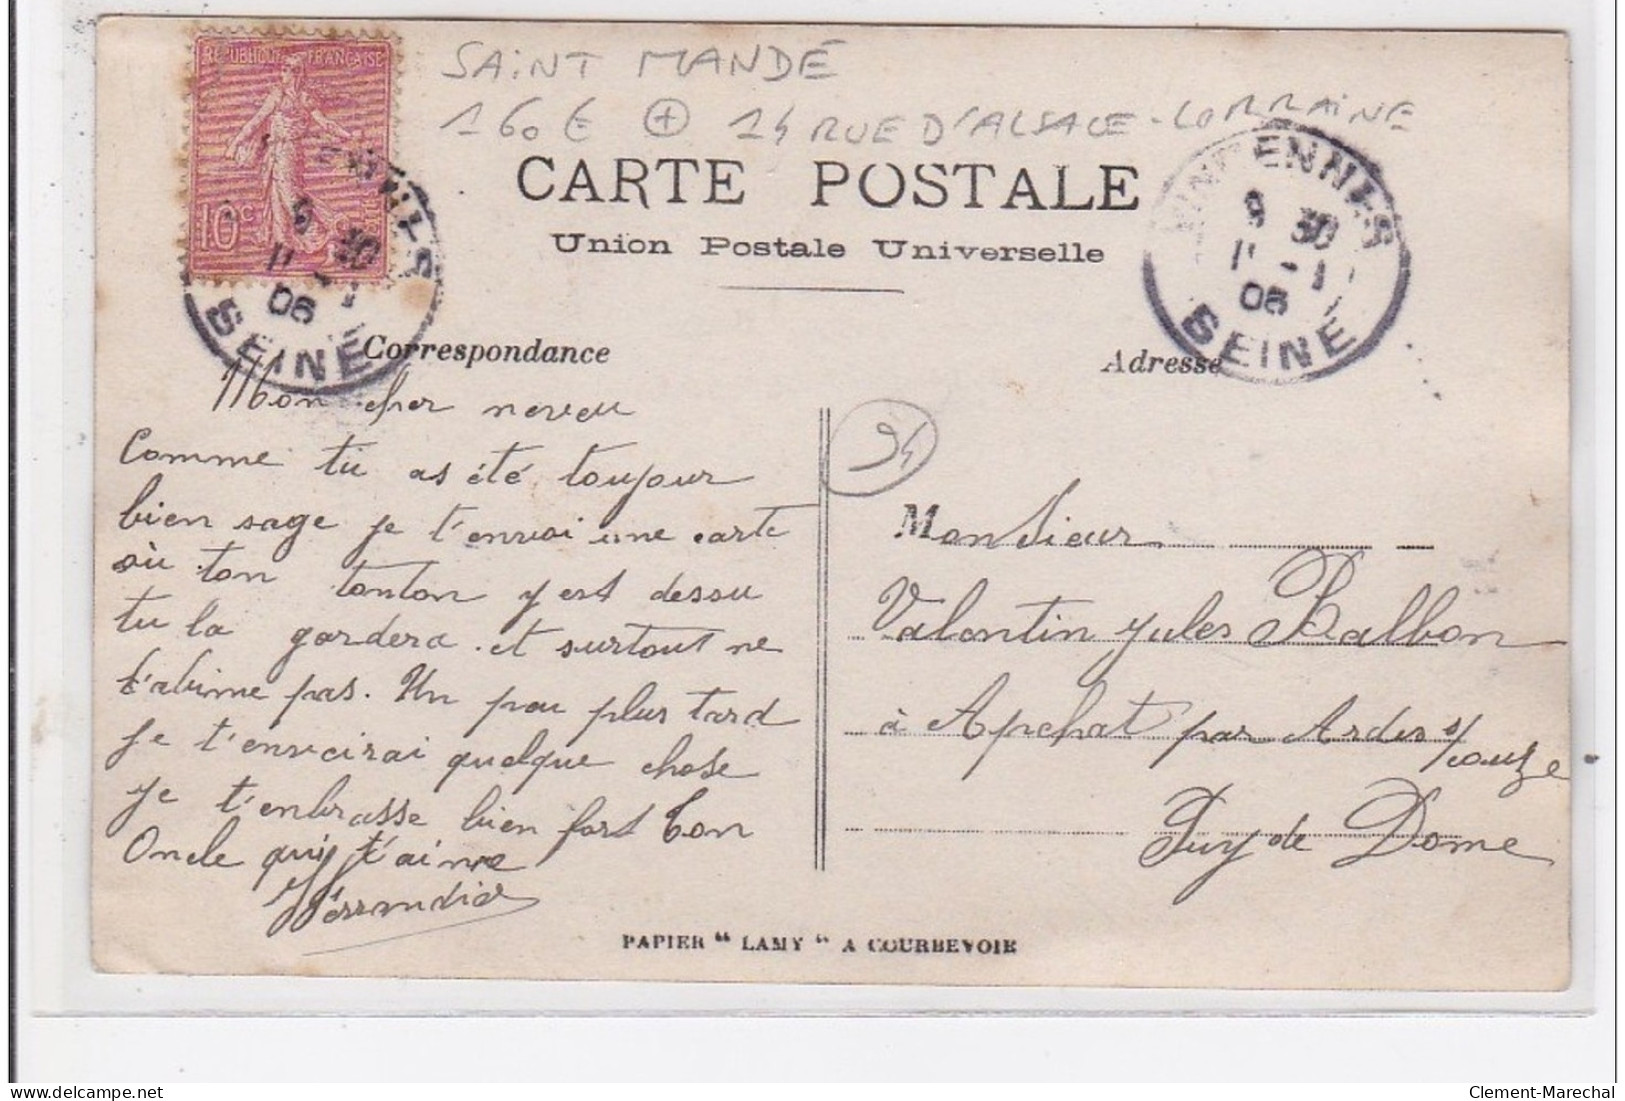 REPUBLIQUE FRANÇAISE
10c
SAINT MANDÉ
160€ + 24 RUE D'ALSACE-LORRAINE
CARTE POSTALE
Union Postale Universelle
VINCENNES
9 30
11 - 1
06
SEINE
Correspondance
Adresse
94
Mon cher neveu
Comme tu as été toujour
bien sage je t'envoi une carte
où ton tonton y est dessu
tu la gardera. et surtout ne
t'abime pas. Un peu plus tard
je t'enverai quelque chose
je t'embrasse bien fort ton
Oncle qui t'aime
Monsieur
Valentin Jules Balbon
à Apchat par Ardes s/couze
Puy de Dome
PAPIER "LAMY" A COURBEVOIE
Clement-Marechal
delcampe.net